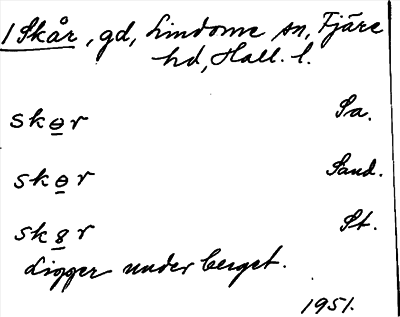 1 Skår, gd, Lindome sn, Fjäre
hd, Hall. l.
skɵr Sa.
skɵr Sand.
sk8r St.
Ligger under berget.
1951.